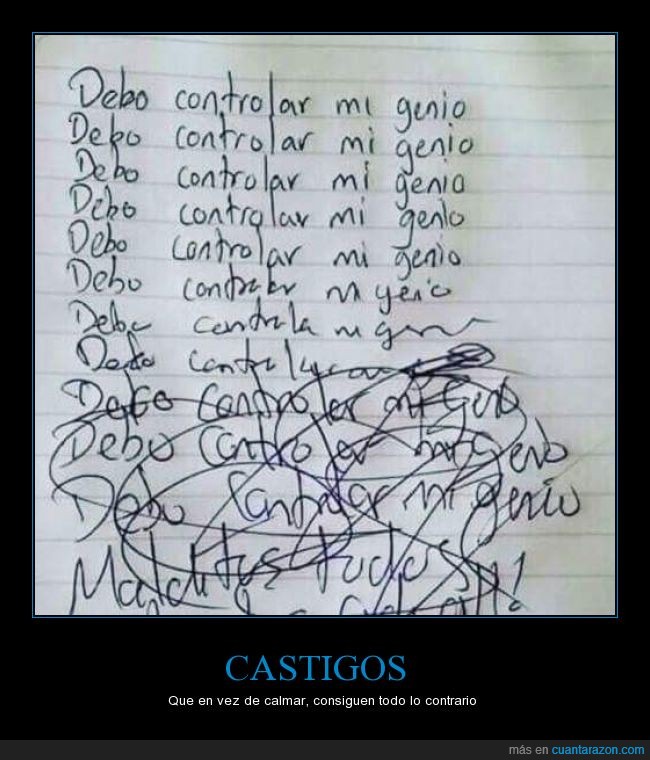 Debo controlar mi genio
Debo controlar mi genio
Debo controlar mi genio
Debo controlar mi genio
Debo controlar mi genio
Debo controlar mi genio
Debo controla mi
Debo
Debo Controlar mi Genio
Debo Controlar mi genio
Debo Controlar mi genio
Malditos todos!!
CASTIGOS
Que en vez de calmar, consiguen todo lo contrario
más en cuantarazon.com